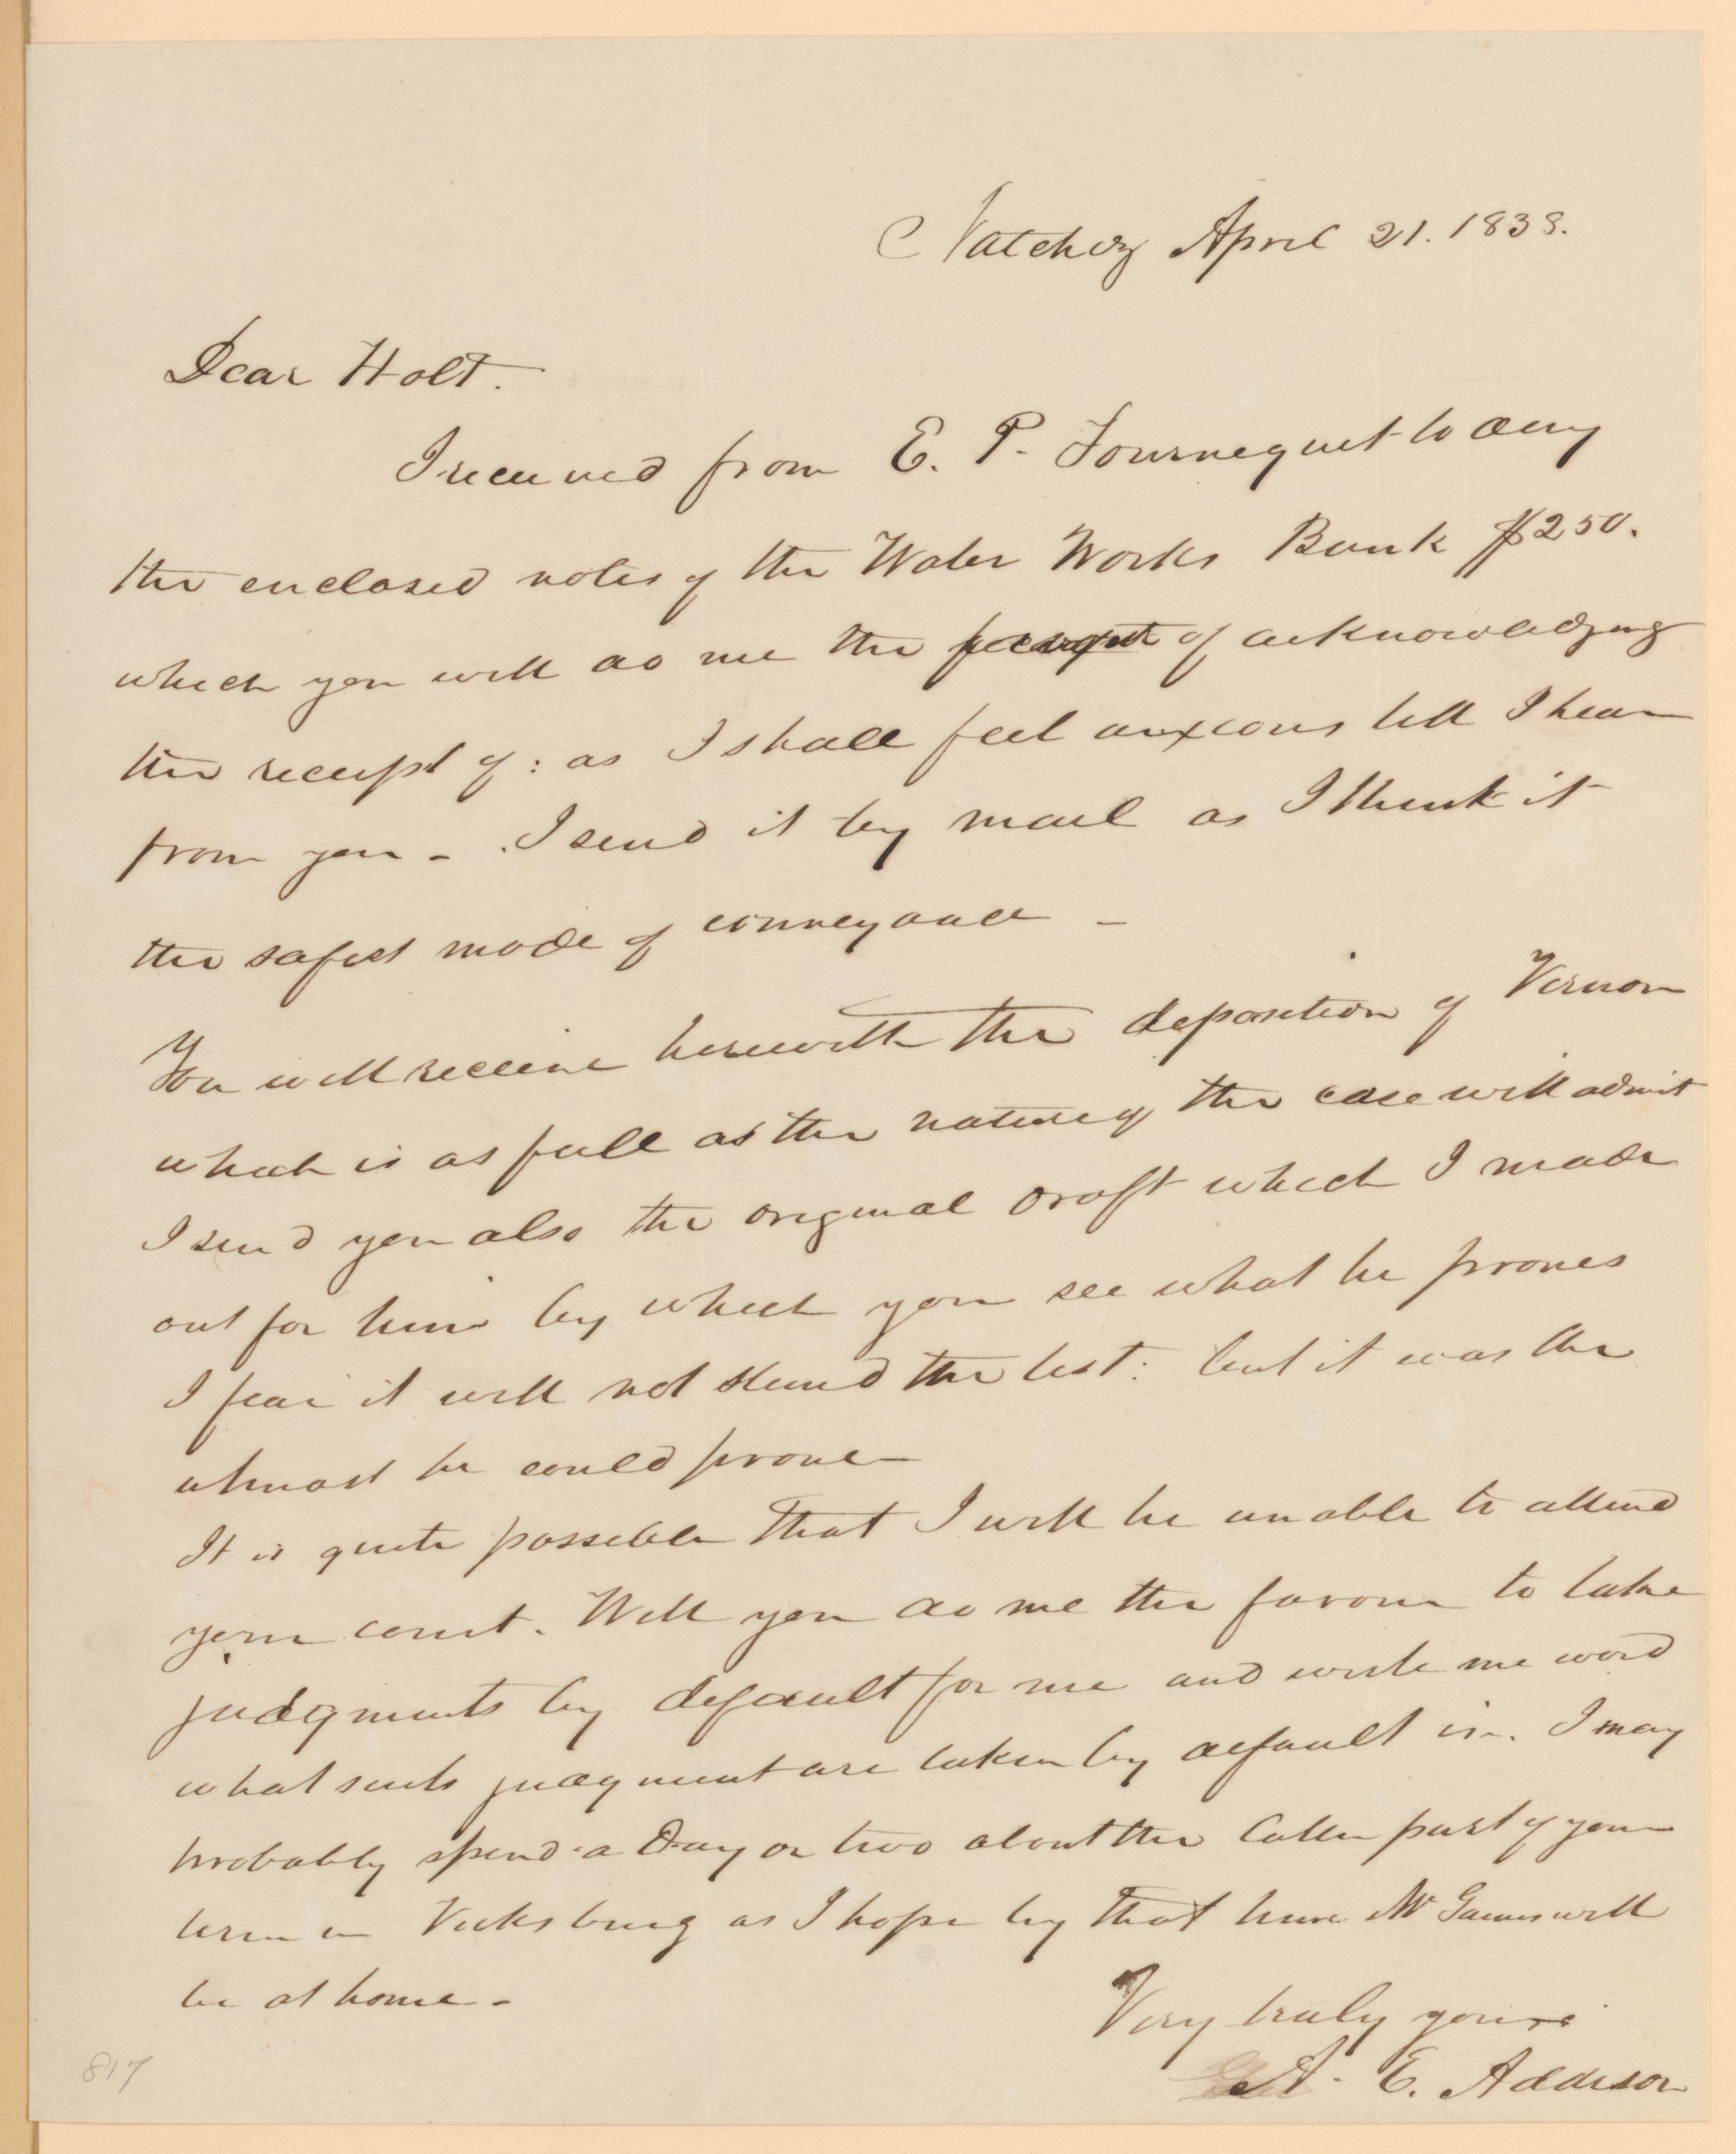 Natchez April 21. 1838.
Dear Holt.
I received from E. P. Fournequet to day
the enclosed notes of the Water Works Bank $250.
which you will do me the of acknowledging
the receipt of: as I shall feel anxious till I hear
from you - I send it by mail as I think it
the safest mode of conveyance -
You will receive herewith the deposition of Vernon
which is as full as the nature of the case will admit
I send you also the original draft which I made
out for him by which you see what he proves
I fear it will not stand the test: but it was the
utmost he could prove -
It is quite possible that I will be unable to attend
your court. Will you do me the favour to take
judgments by default for me and write me word
what suits judgment are taken by default in. I may
probably spend a day or two about the latter part of your
term in Vicksburg as I hope by that time Mr Gaines will
be at home -
Very truly yours
A. E. Addison
817